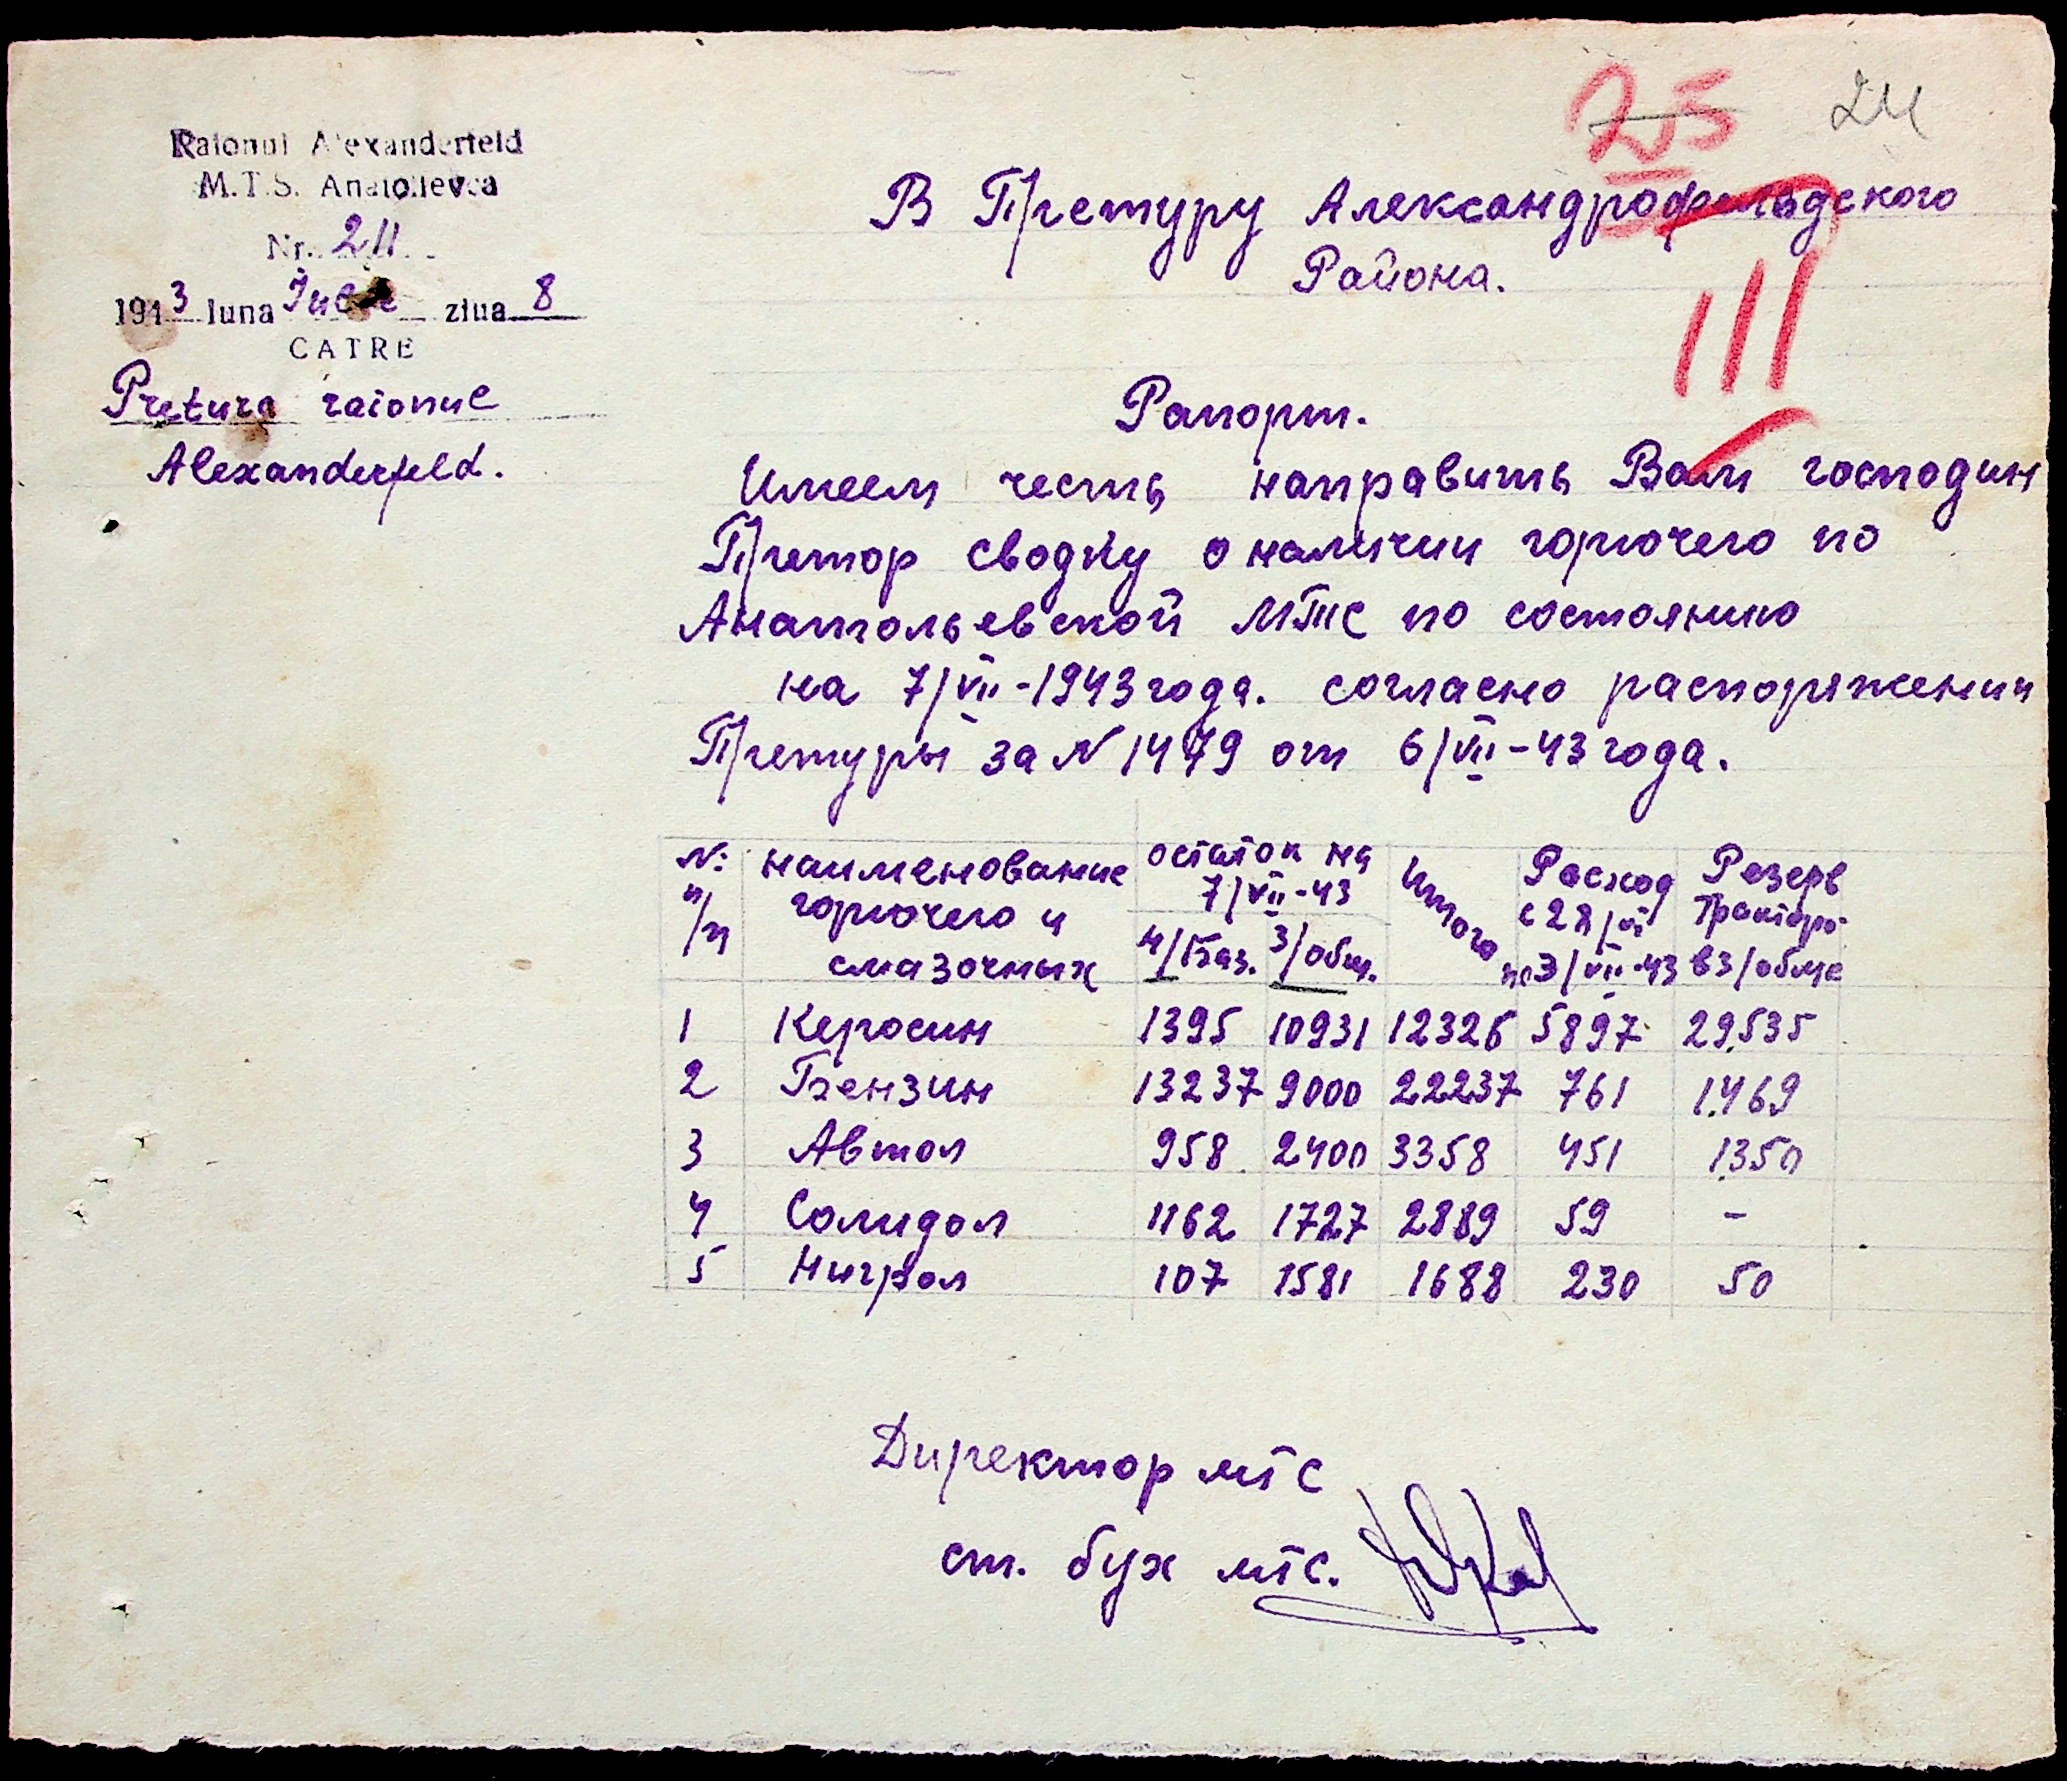 25 24
Raionul Alexanderfeld
M.T.S. Anatolievca
Nr. 211
1943 luna Iulie ziua 8
CATRE
Pretura raionul
Alexanderfeld.
В Претуру Александрофельдского
Района.
III
Рапорт.
Имеем честь направить Вам господин
Претор сводку о наличии горючего по
Анатольевской МТС по состоянию
на 7/VII-1943 года. согласно распоряжении
Претуры за N 1479 от 6/VII-43 года.
№ п/п наименование горючего и смазочных остаток на 7/VII-43 Н/Баз. З/общ. Итого Расход с 28/VI по 3/VII-43 Резерв Трактора в З/обще
1 Керосин 1395 10931 12326 5897 29.535
2 Бензин 13237 9000 22237 761 1.469
3 Автол 958 2400 3358 451 1350
4 Солидол 1162 1727 2889 59 -
5 Нигрол 107 1581 1688 230 50
Директор мтс
ст. бух мтс.